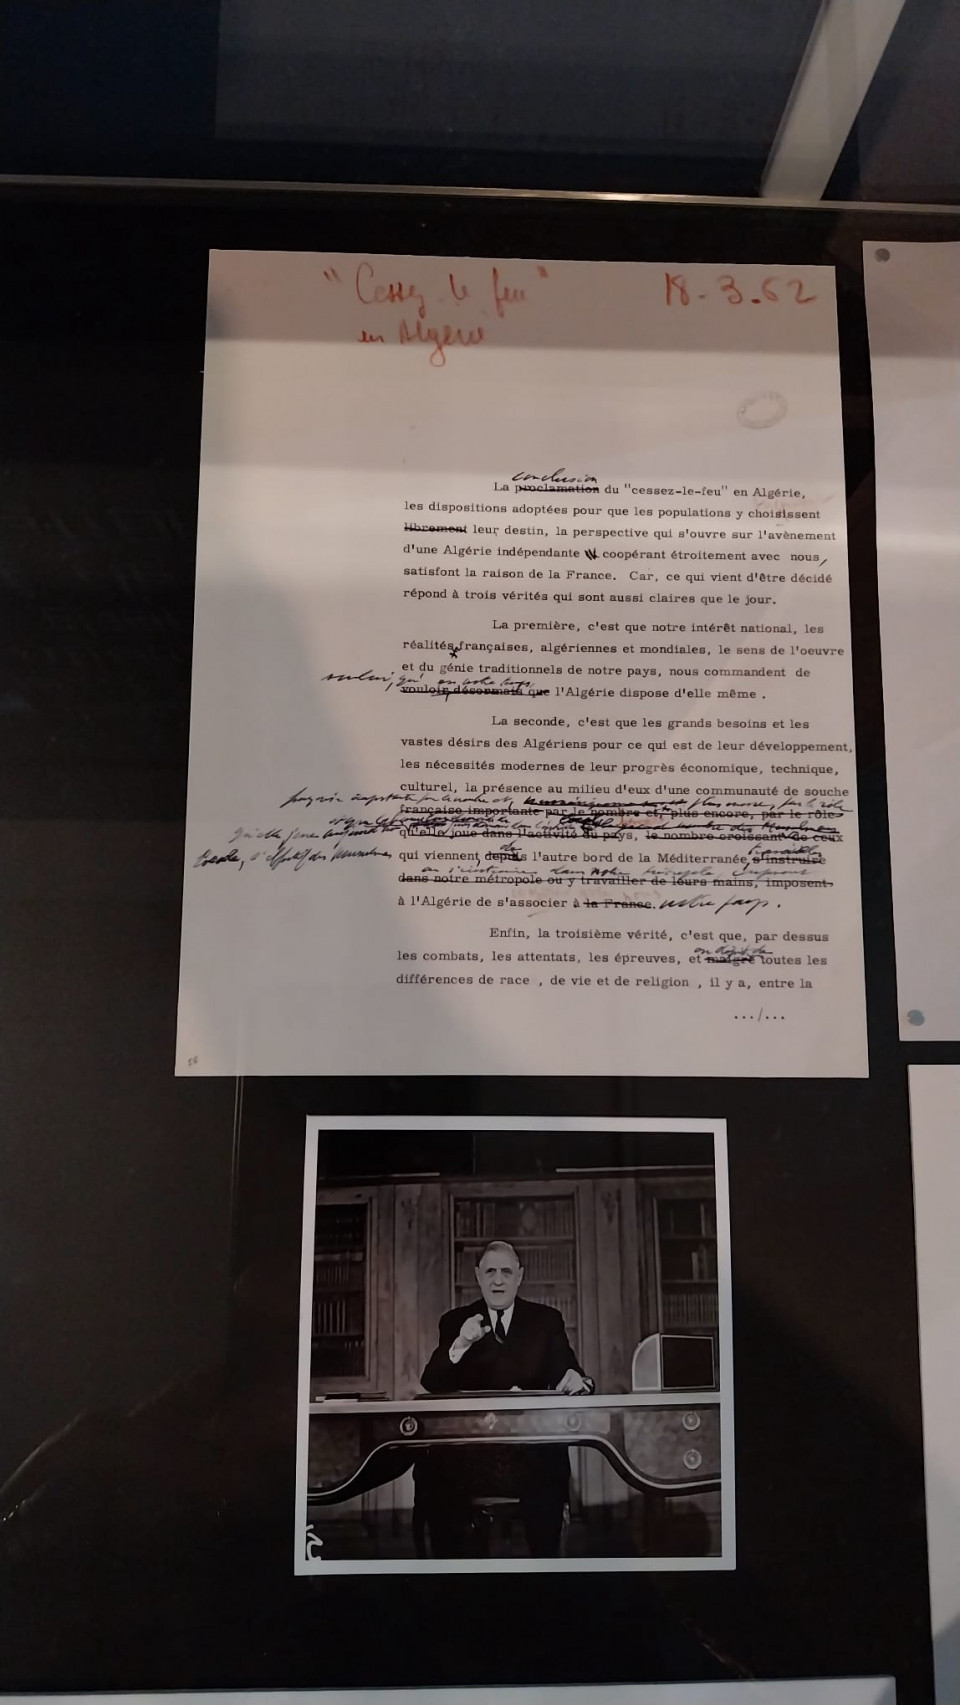 "Cessez le feu" 18-3.62
en Algérie
conclusion
La proclamation du "cessez-le-feu" en Algérie,
les dispositions adoptées pour que les populations y choisissent
librement leur destin, la perspective qui s'ouvre sur l'avènement
d'une Algérie indépendante coopérant étroitement avec nous,
satisfont la raison de la France. Car, ce qui vient d'être décidé
répond à trois vérités qui sont aussi claires que le jour.
La première, c'est que notre intérêt national, les
réalités françaises, algériennes et mondiales, le sens de l'oeuvre
et du génie traditionnels de notre pays, nous commandent de
vouloir, qu' en notre temps,
vouloir désormais que l'Algérie dispose d'elle même .
La seconde, c'est que les grands besoins et les
vastes désirs des Algériens pour ce qui est de leur développement,
les nécessités modernes de leur progrès économique, technique,
culturel, la présence au milieu d'eux d'une communauté de souche
française importante par le nombre et, plus encore, par le rôle
qu'elle joue
qu'elle joue dans l'activité du pays, le nombre croissant de ceux
l'effectif des Musulmans qui viennent, depuis l'autre bord de la Méditerranée, s'instruire
de travailler
ou s'instruire dans notre métropole imposent
dans notre métropole ou y travailler de leurs mains, imposent
à l'Algérie de s'associer à la France. notre pays.
Enfin, la troisième vérité, c'est que, par dessus
en dépit de
les combats, les attentats, les épreuves, et malgré toutes les
différences de race , de vie et de religion , il y a, entre la
.../...